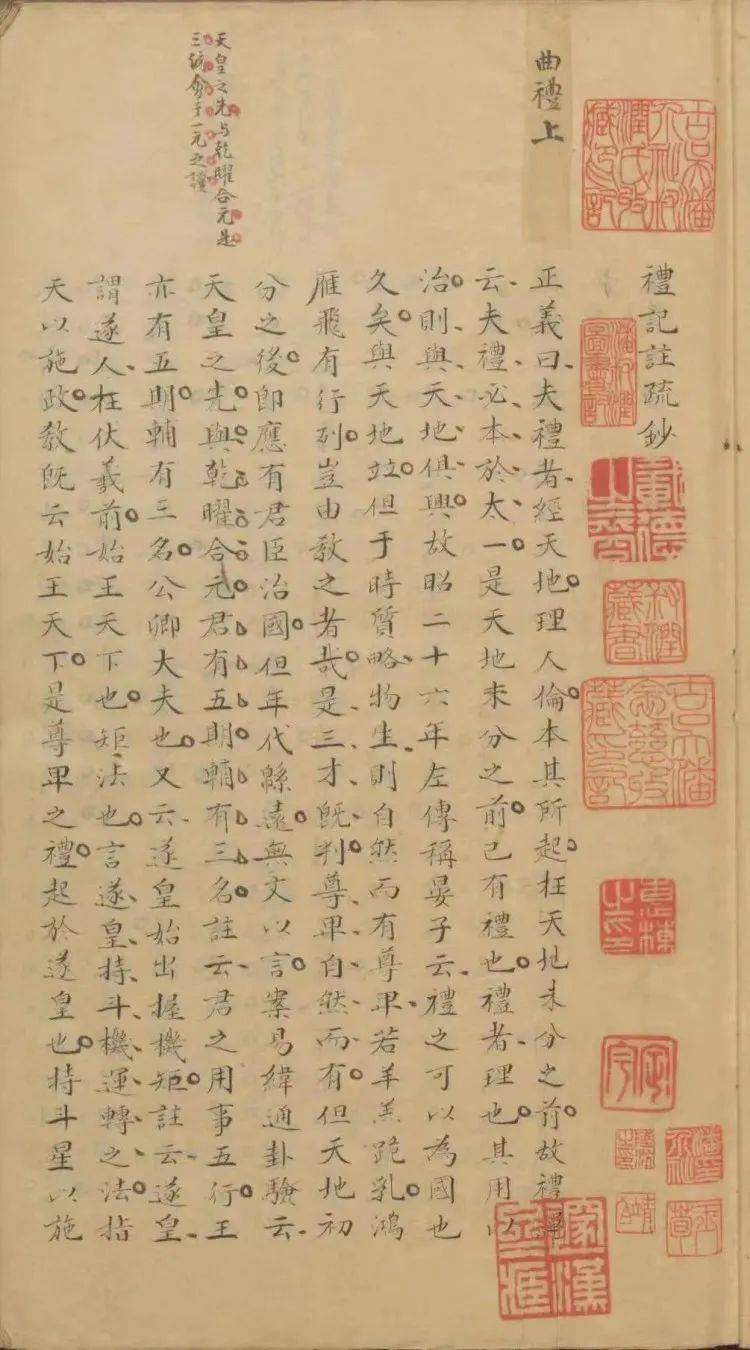 古吳潘介祉叔潤氏收藏印記
潘叔潤圖書記
叔潤藏書
古吳潘念慈收藏印記
惠棟之印
定宇
禮記註疏鈔
曲禮上
正義曰夫禮者經天地理人倫本其所起在天地未分之前故禮運
云夫禮必本於太一是天地未分之前已有禮也禮者理也其用以
治則與天地俱興故昭二十六年左傳稱晏子云禮之可以為國也
久矣與天地並但于時質略物生則自然而有尊卑若羊羔跪乳鴻
雁飛有行列豈由教之者哉是三才既判尊卑自然而有但天地初
分之後即應有君臣治國但年代緜遠無文以言案易緯通卦驗云
天皇之先與乾曜合元君有五期輔有三名註云君之用事五行王
亦有五期輔有三名公卿大夫也又云遂皇始出握機矩註云遂皇
謂遂人在伏羲前始王天下也矩法也言遂皇持斗機運轉之法指
天以施政教既云始王天下是尊卑之禮起於遂皇也持斗星以施
天皇之先与乾曜合元是
三統會于一元之證